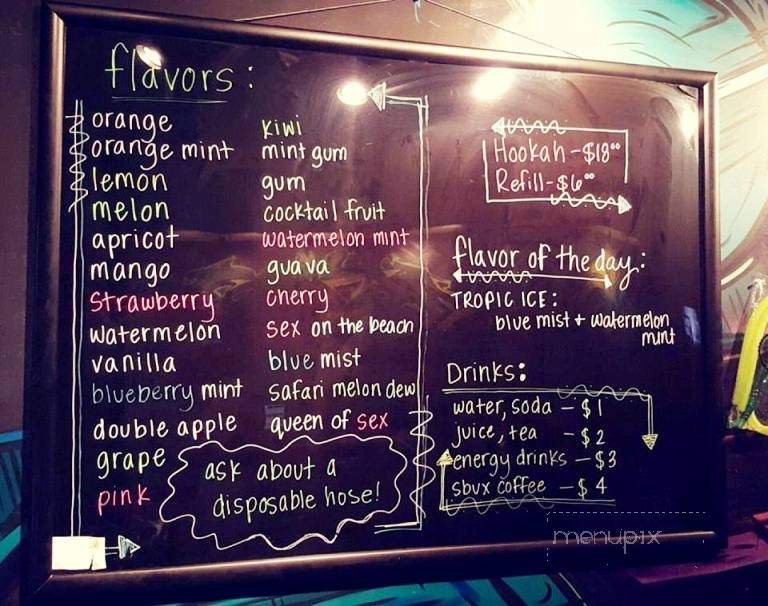 flavors:
orange
orange mint
lemon
melon
apricot
mango
strawberry
watermelon
vanilla
blueberry mint
double apple
grape
pink
kiwi
mint gum
gum
cocktail fruit
watermelon mint
guava
cherry
sex on the beach
blue mist
safari melon dew
queen of sex
ask about a
disposable hose!
Hookah - $18⁰⁰
Refill - $6⁰⁰
flavor of the day:
TROPIC ICE:
blue mist + watermelon
mint
Drinks:
water, soda - $1
juice, tea - $2
energy drinks - $3
sbux coffee - $4
menupix